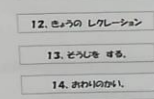 12、きょうの レクレーション
13、そうじを する。
14、おわりのかい。